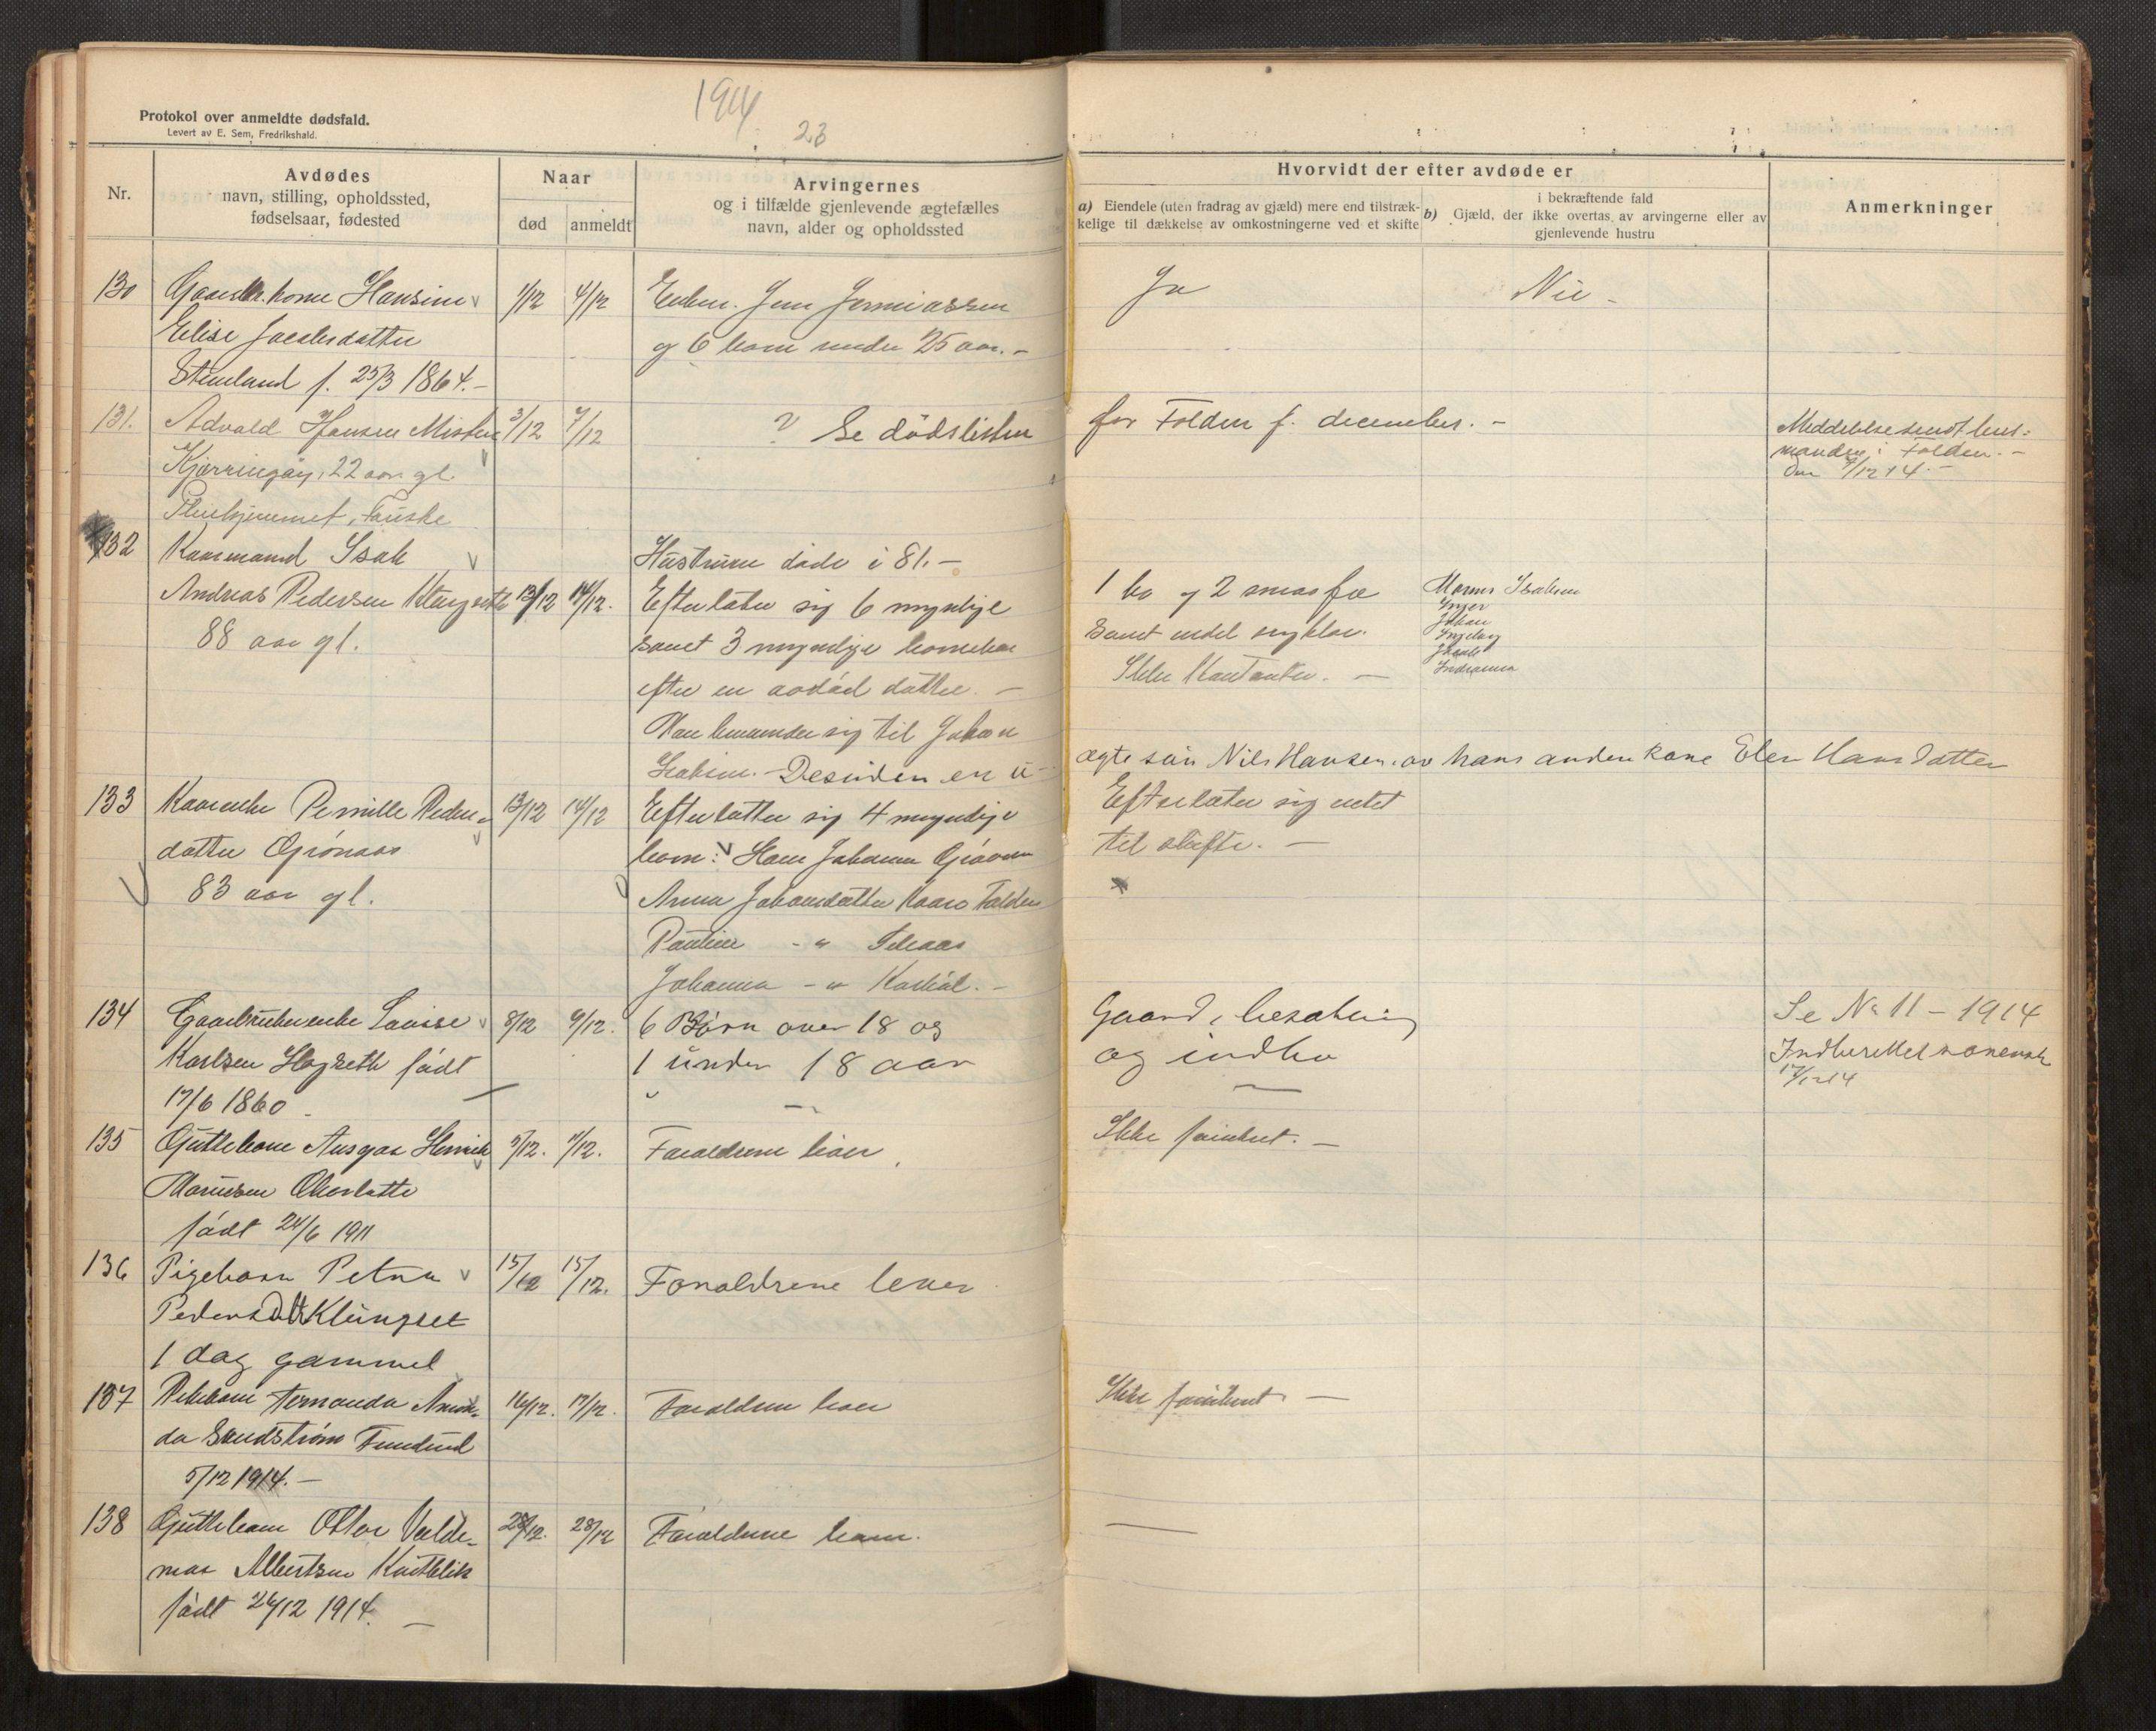 1914
23
Protokol over anmeldte dødsfald.
Levert av E. Sem, Fredrikshald.
Nr.
Avdødes
navn, stilling, opholdssted,
fødselsaar, fødested
Naar
død
anmeldt
Arvingernes
og i tilfælde gjenlevende ægtefælles
navn, alder og opholdssted
Hvorvidt der efter avdøde er
a) Eiendele (uten fradrag av gjæld) mere end tilstræk-
kelige til dækkelse av omkostningerne ved et skifte
i bekræftende fald
b) Gjæld, der ikke overtas av arvingerne eller av
gjenlevende hustru
Anmerkninger
130
Gaardbr. kone Hansine
Elise Jacobsdatter
Stemland f. 25/3 1864.-
1/12
4/12
Enkem. Jens Jermiassen
og 6 born under 25 aar. -
Ja
Nei -
131.
Advald Hansen Misten
Kjerringøy, 22 aar gl.
Pleiehjemmet, Fauske
3/12
7/12
? Se dödslisten
for Folden f. december. -
Meddelelse sendt lens-
manden i Folden. -
den 9/12 14. -
132
Kaarmand Isak
Andreas Pedersen Klungseth
88 aar gl.
13/12
14/12.
Hustruen døde i 81. -
Efterlater sig 6 myndige
samt 3 myndige bornebar
efter en avdød datter. -
Man henvender sig til Johan
Isaksen. - Desuden en u-
ægte søn Nils Hansen. av hans anden kone Elen Hans Datter
1 ko og 2 smaafæ
samt endel sengklær.
Ikke Kontanter. -
Isaksen
Inger
Johan
Ingeborg
Indianna
133
Kaarenke Pernille Peders-
datter Grønaas
83 aar gl.
13/12
14/12
Efterlatter sig 4 myndige
born: Hans Johansen Grønaas
Anna Johansdatter Kaars Folden
Pauline - " -
Johanna - " -
Efterlater sig intet
til skifte. -
134
Gaardbrukerenke Lovise
Karlsen Hagseth født
17/6 1860.
8/12
9/12.
6 Børn over 18 og
1 under 18 aar
Gaard, besætning
og indbo
Se No 11 - 1914
17/12 14
135
Guttebarn Ansgar Henrik
Mariusen Charlotte
født 24/6 1911
5/12.
7/12.
Foraldrene lever.
Ikke formuet. -
136
Pigebarn Petra
PedersDatt Klungset
1 dag gammel
15/12
15/12.
Foraldrene lever
137
Pikebarn Fernanda Aman-
da Sandstrøm Furulund
5/12 1914. -
16/12.
17/12.
Foraldrene lever
Ikke formuet -
138
Guttebarn Ottar Valde-
mar Albertsen Kvitblik
født 26/12 1914. -
28/12.
28/12
Foraldrene lever.